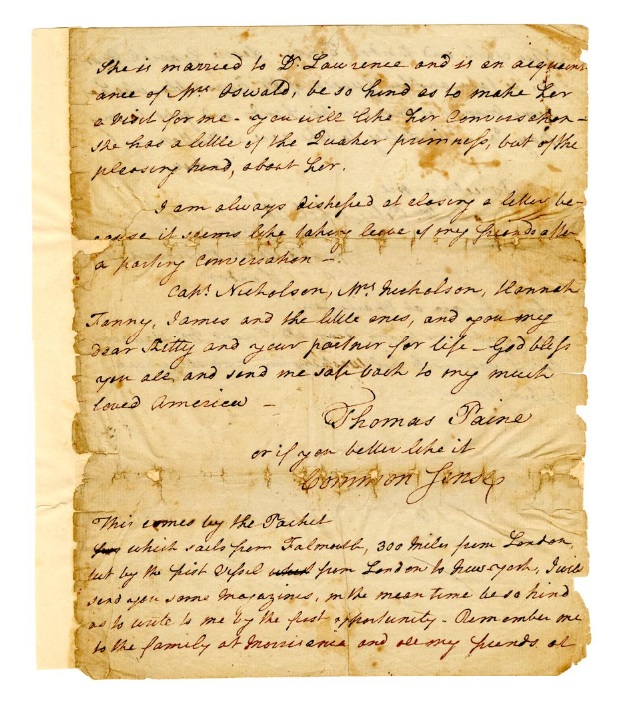 She is married to Dr. Lawrence and is an acquaint-
ance of Mrs Oswald, be so kind as to make her
a visit for me - you will like her Conversation -
she has a little of the Quaker primness, but of the
pleasing kind, about her.
I am always distressed at closing a letter be-
cause it seems like taking leave of my friends after
a parting Conversation -.
Capt. Nicholson, Mrs Nicholson, Hannah
Fanny, James and the little ones, and you my
dear Kitty and your partner for life - God bless
you all, and send me safe back to my much
loved America -
Thomas Paine
or if you better like it
Common Sense
This comes by the Packet
which sails from Falmouth, 300 Miles from London,
but by the first Vessel from London to New-york, I will
send you some Magazines, in the mean time be so kind
as to write to me by the first opportunity - Remember me
to the family at Morrisania and all my friends at